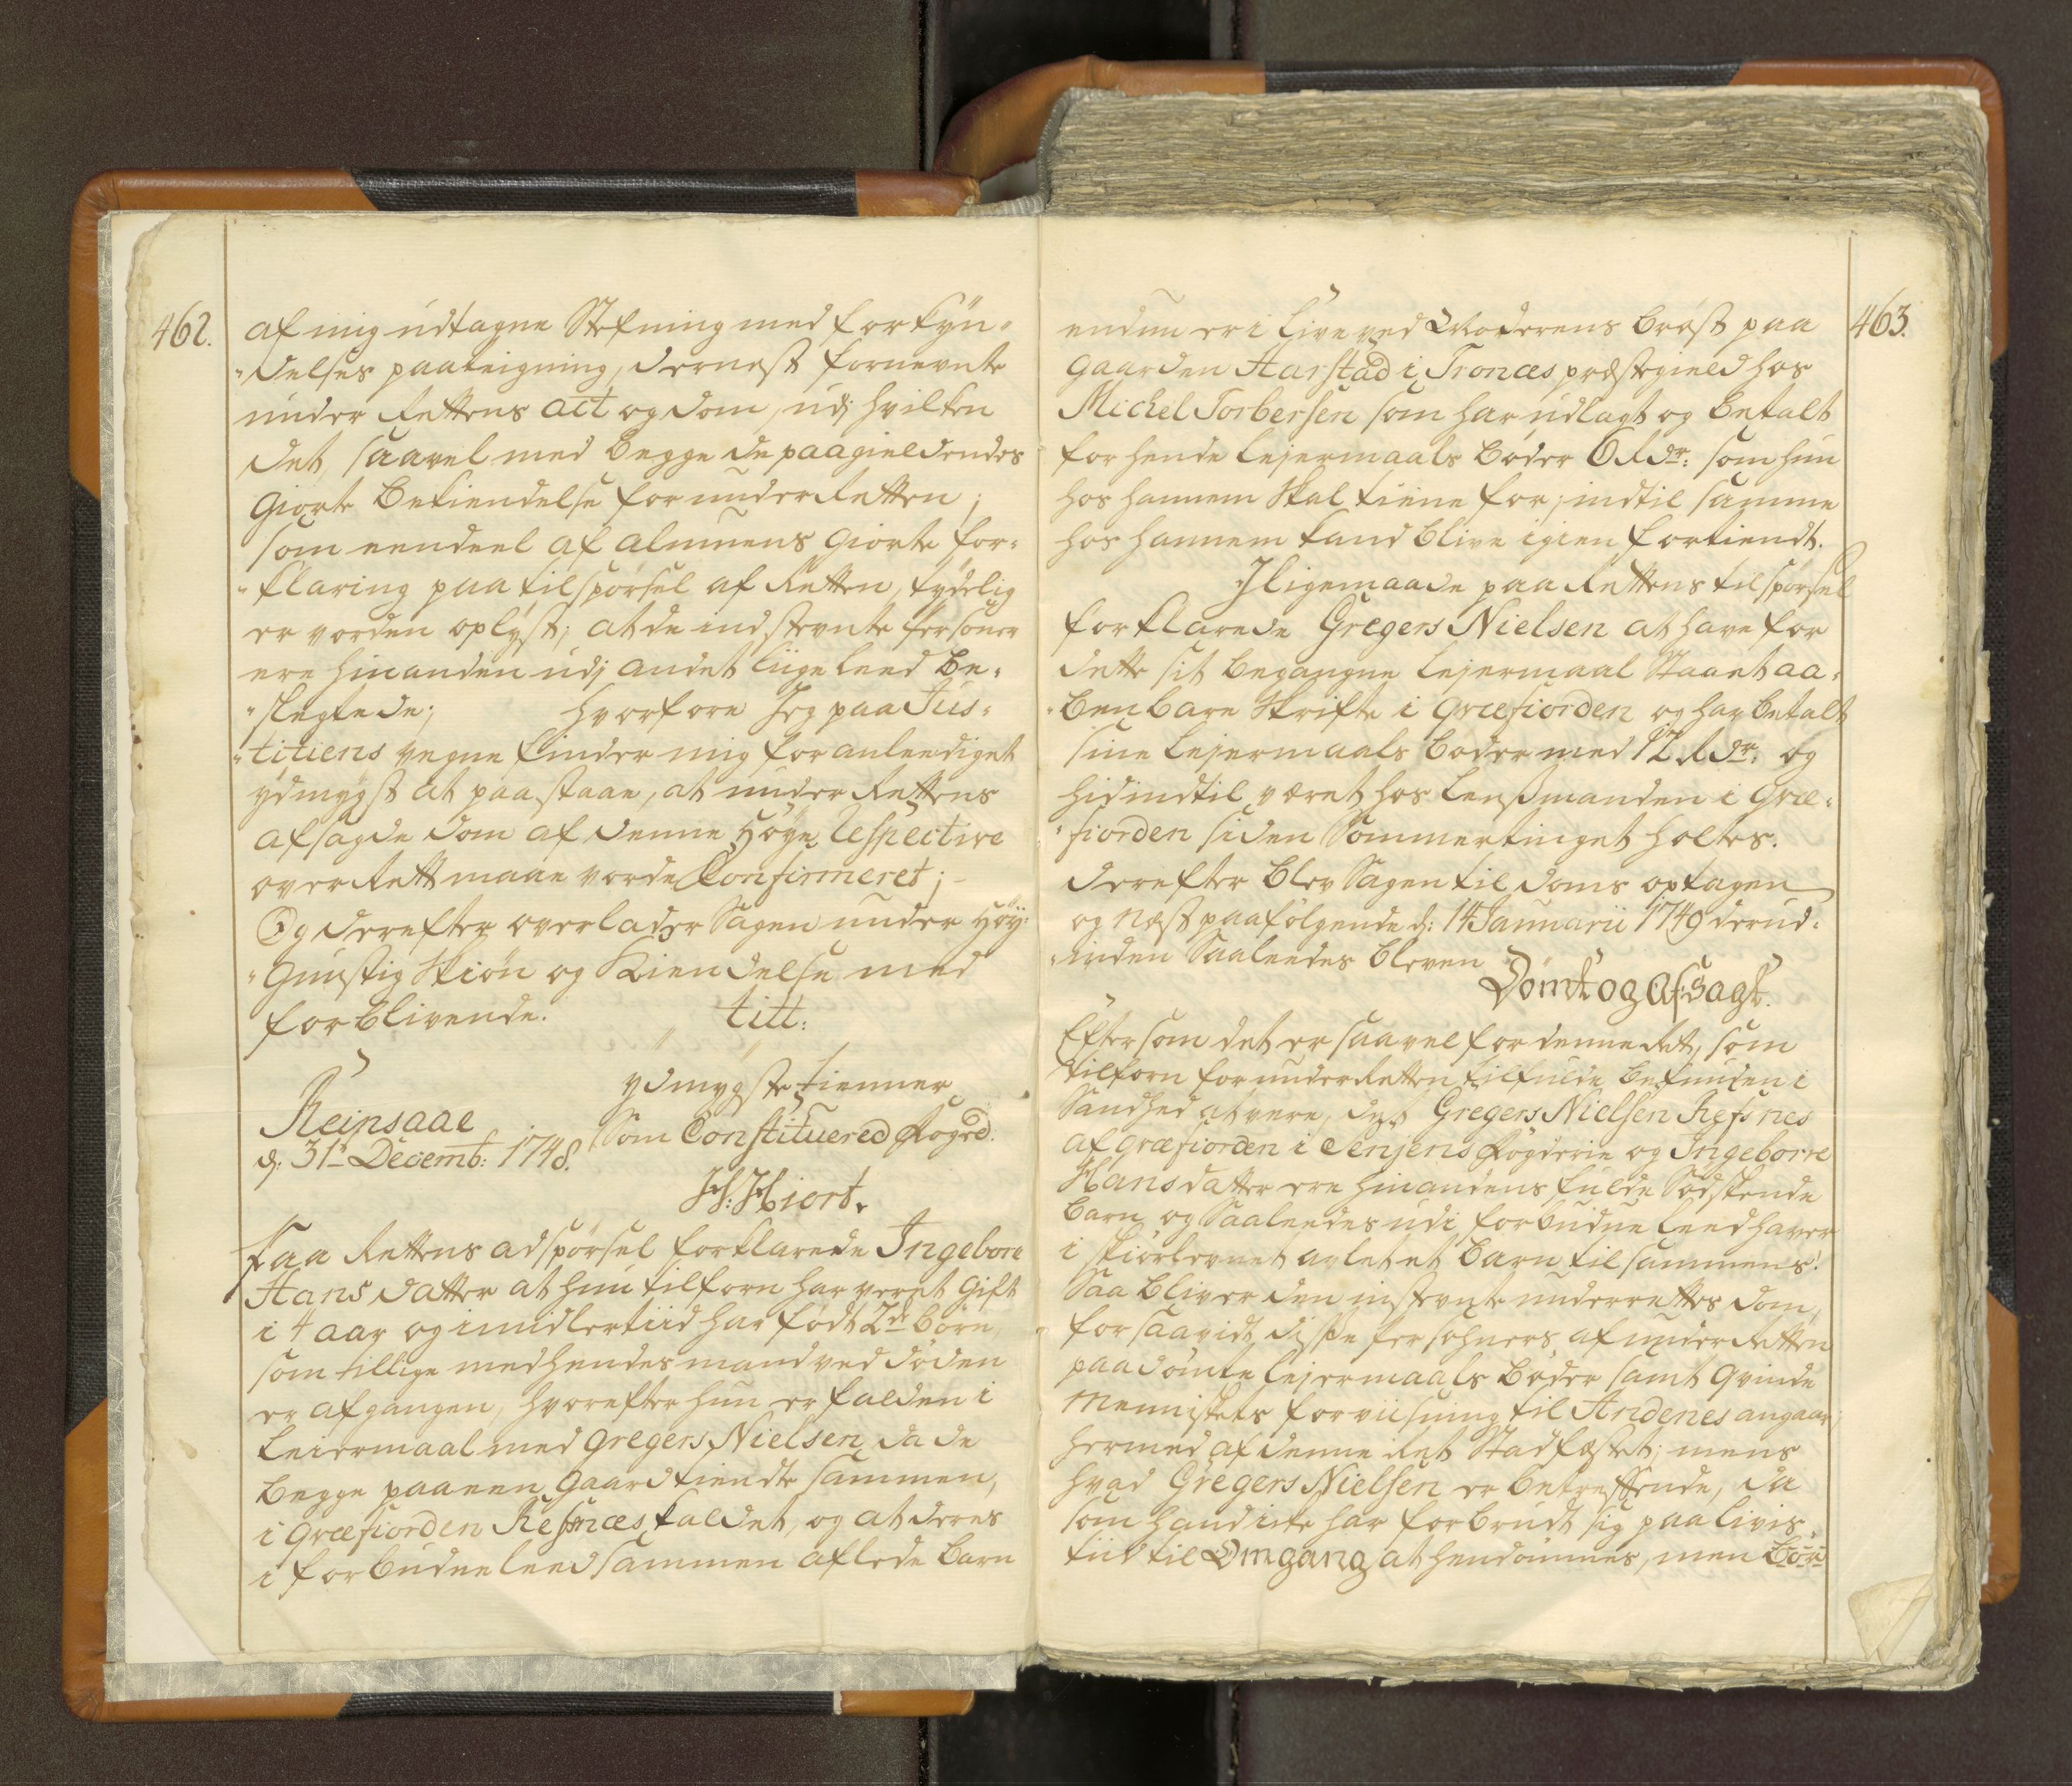 462.
af mig udtagne Stefning med forkÿn-
"delses paateigning, dernest fornevnte
under Rettens act og dom, udj hvilken
det, saavel med begge de paagieldendes
giorte bekiendelse for under Retten;
som eendeel af almuens giorte for-
"klaring paa tilspørsel af Retten, tydelig
er vorden oplyst; at de indstevnte Personer
ere hinanden udj andet liige leed be-
"slegtede; hvorfore Jeg paa Jus-
"titiens vegne finder mig foranlediget
ydmygst at paastaae, at under Rettens
afsagde dom af denne Höye Respective
over Rett maae vorde Confirmeret;
Og derefter overlader Sagen under Höÿ-
"gunstig Skiøn og Kiendelse med
forblivende. titt:
ydmygste tienner
Reinsaae
Som Constituered Foged.
d: 31te Decemb: 1748.
H: Hiort.
Paa Rettens adspørsel forklarede Ingebore
Hans datter at hun tilforn har veret gift
i 4 aar og imidlertiid har født 2de børn,
som tillige med hendes mand ved døden
er afgangen, hvorefter hun er falden i
Leiermaal med Gregers Nielsen, da de
begge paa een gaard tiendte sammen,
i Græfiorden Refsnæs kaldet, og at deres
i forbudne leed sammen aflede barn
463.
endnu er i Live ved Moderens bröst paa
gaarden Aarstad i Tronæs præstegield hos
Michel Torbersen som har udlagt og betalt
for hende Lejermaals bøder 6 Rdr: som hun
hos hannem skal tiene for; indtil samme
hos hannem kand blive igien fortiendt.
Jligemaade paa Rettens tilspørsel
forklarede Gregers Nielsen at have for
dette sit begangne Lejermaal staaet aa-
"benbare Skrifte i Græfiorden og har betalt
sine Lejermaals bøder med 12 Rdr: og
hidindtil været hos Lensmanden i Græ-
"fiorden siden Sommertinget holtes.
derefter blev Sagen til doms optagen
og næst paafølgende d: 14 Januarii 1749 derud-
inden Saaleedes bleven
Dömt og Afsagt.
Eftersom det er saavel for denne Ret, som
tilforn for under Retten tilfulde befunden i
Sandhed at vere, det Gregers Nielsen Refsnes
af Græfiorden i Senjens Fogderie og Ingeborre
Hans datter ere hinandens fulde Sødskende
barn og Saaleedes udi forbudne leed haver
i skiørlevnet avlet et barn tilsammens:
Saa bliver den instevnte underrettes dom,
forsaavidt disse Persohners af under Retten
paadömte Lejermaals bøder samt qvinde
Menniskets forviisning til Andenes angaar,
hermed af denne Ret Stadfæstet; mens
hvad Gregers Nielsen er betreffende, da
som hand icke har forbrudt sig paa livis
tiid til Omgang at hendömmes, men bör